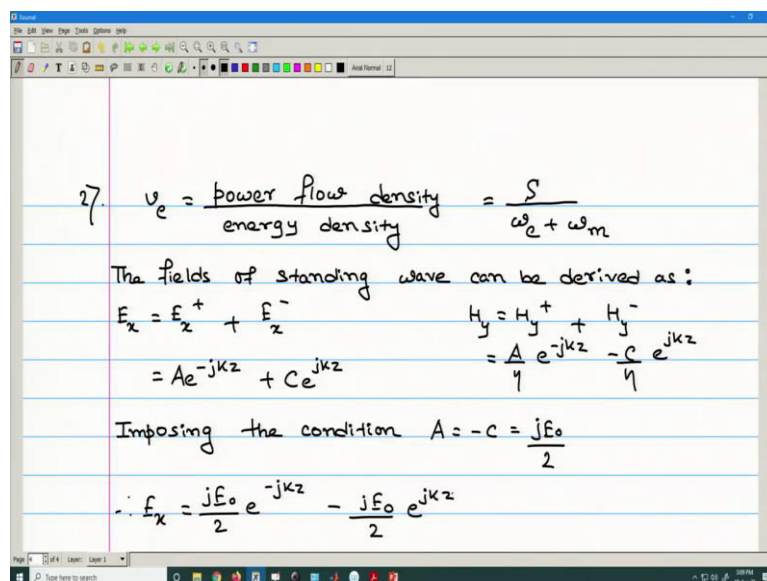 Journal
File Edit View Page Tools Options Help
Arial Normal 12
27. v_e = power flow density / energy density = S / ω_e + ω_m
The fields of standing wave can be derived as:
E_x = E_x^+ + E_x^-    H_y = H_y^+ + H_y^-
= Ae^{-jkz} + Ce^{jkz}    = A/η e^{-jkz} - C/η e^{jkz}
Imposing the condition A = -C = jE_0/2
∴ E_x = jE_0/2 e^{-jkz} - jE_0/2 e^{jkz}
Page 4 of 4 Layer: Layer 1
Type here to search
3:09 PM